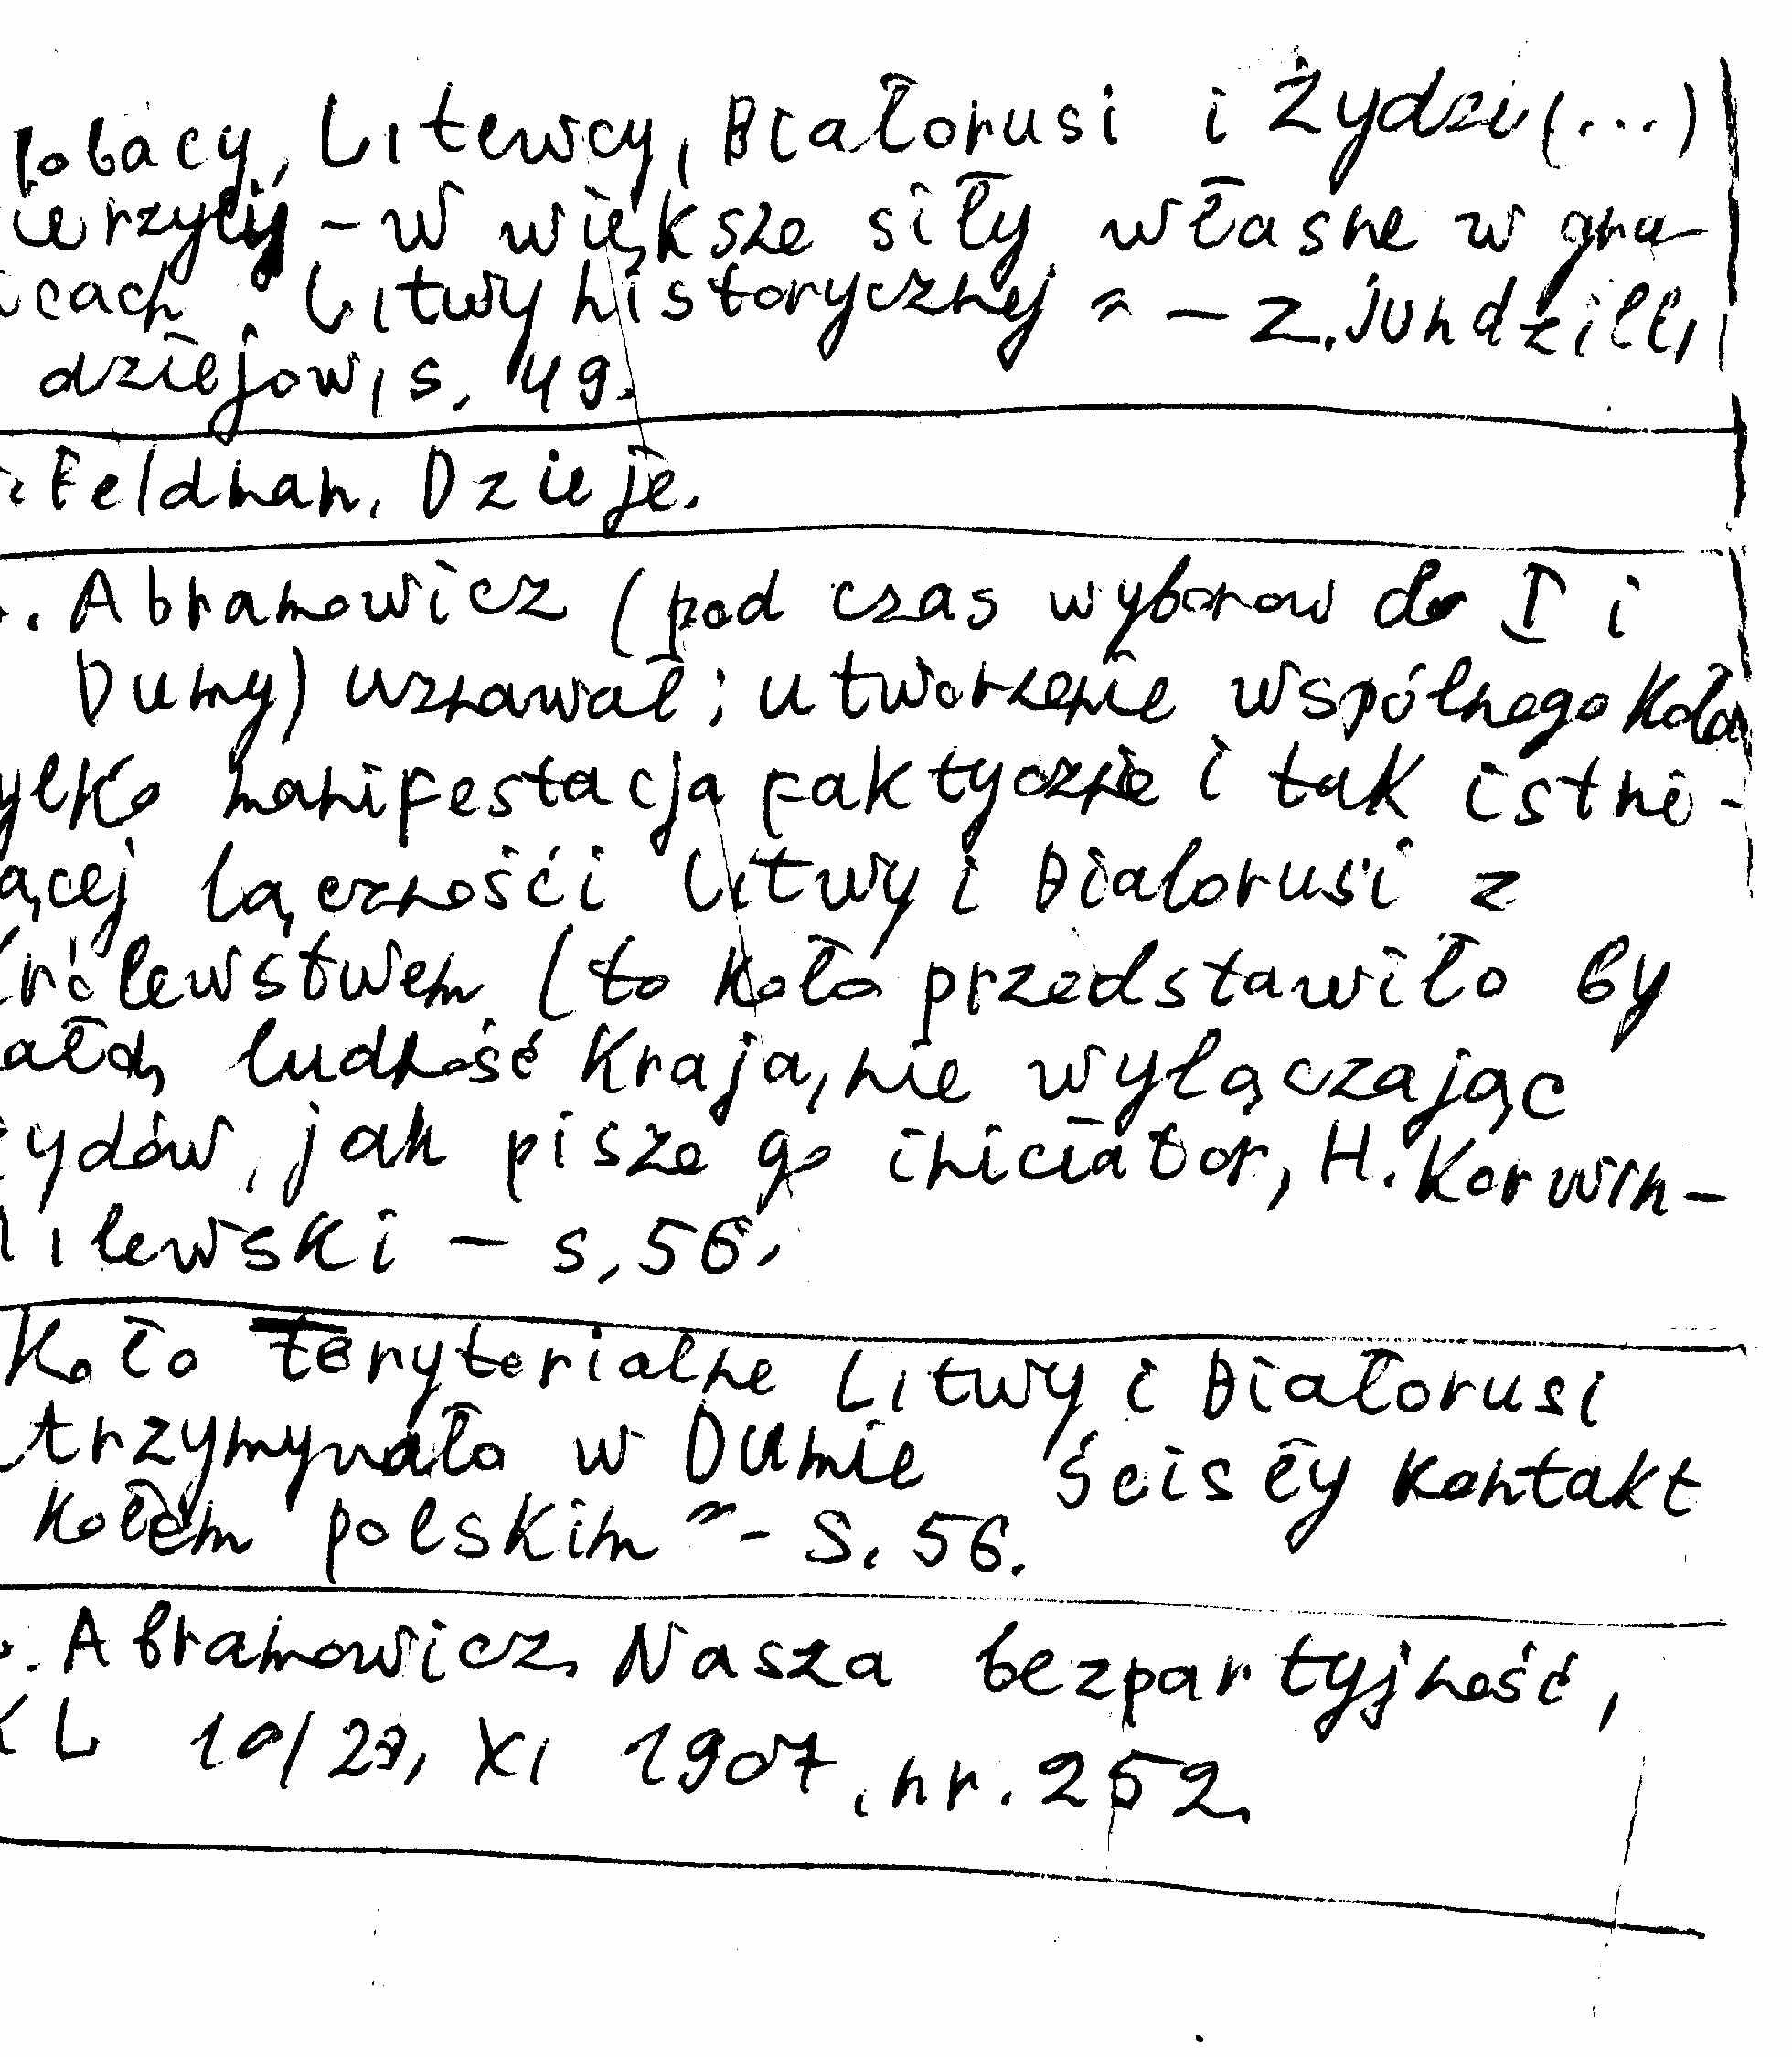 lobacy, Litewcy, Białorusi i Żydzi (...)
ierzyli - w większe siły własne w gra-
icach Litwy historycznej" - Z. jundzill,
dziejow, s. 49.
Feldman. Dzieje.
. Abramowicz (pod czas wyborow do I i
Dumy) uznawał; utworzenie wspólnego Koła
ylko manifestacja faktycznie i tak istni-
ącej lącznośći Litwy i Bialorusi z
królewstwem (to koło przedstawiło by
ałą ludność Kraja, nie wylączając
ydów, jak pisze go iniciator, H. Korwin-
ilewski - s, 56.
Koło terytorialne Litwy i Białorusi
trzymywało w Dumie ścisły kontakt
kołem polskim" - s. 56.
. Abramowicz. Nasza bezpartyjność,
KL 10/23, XI 1907, nr. 252.